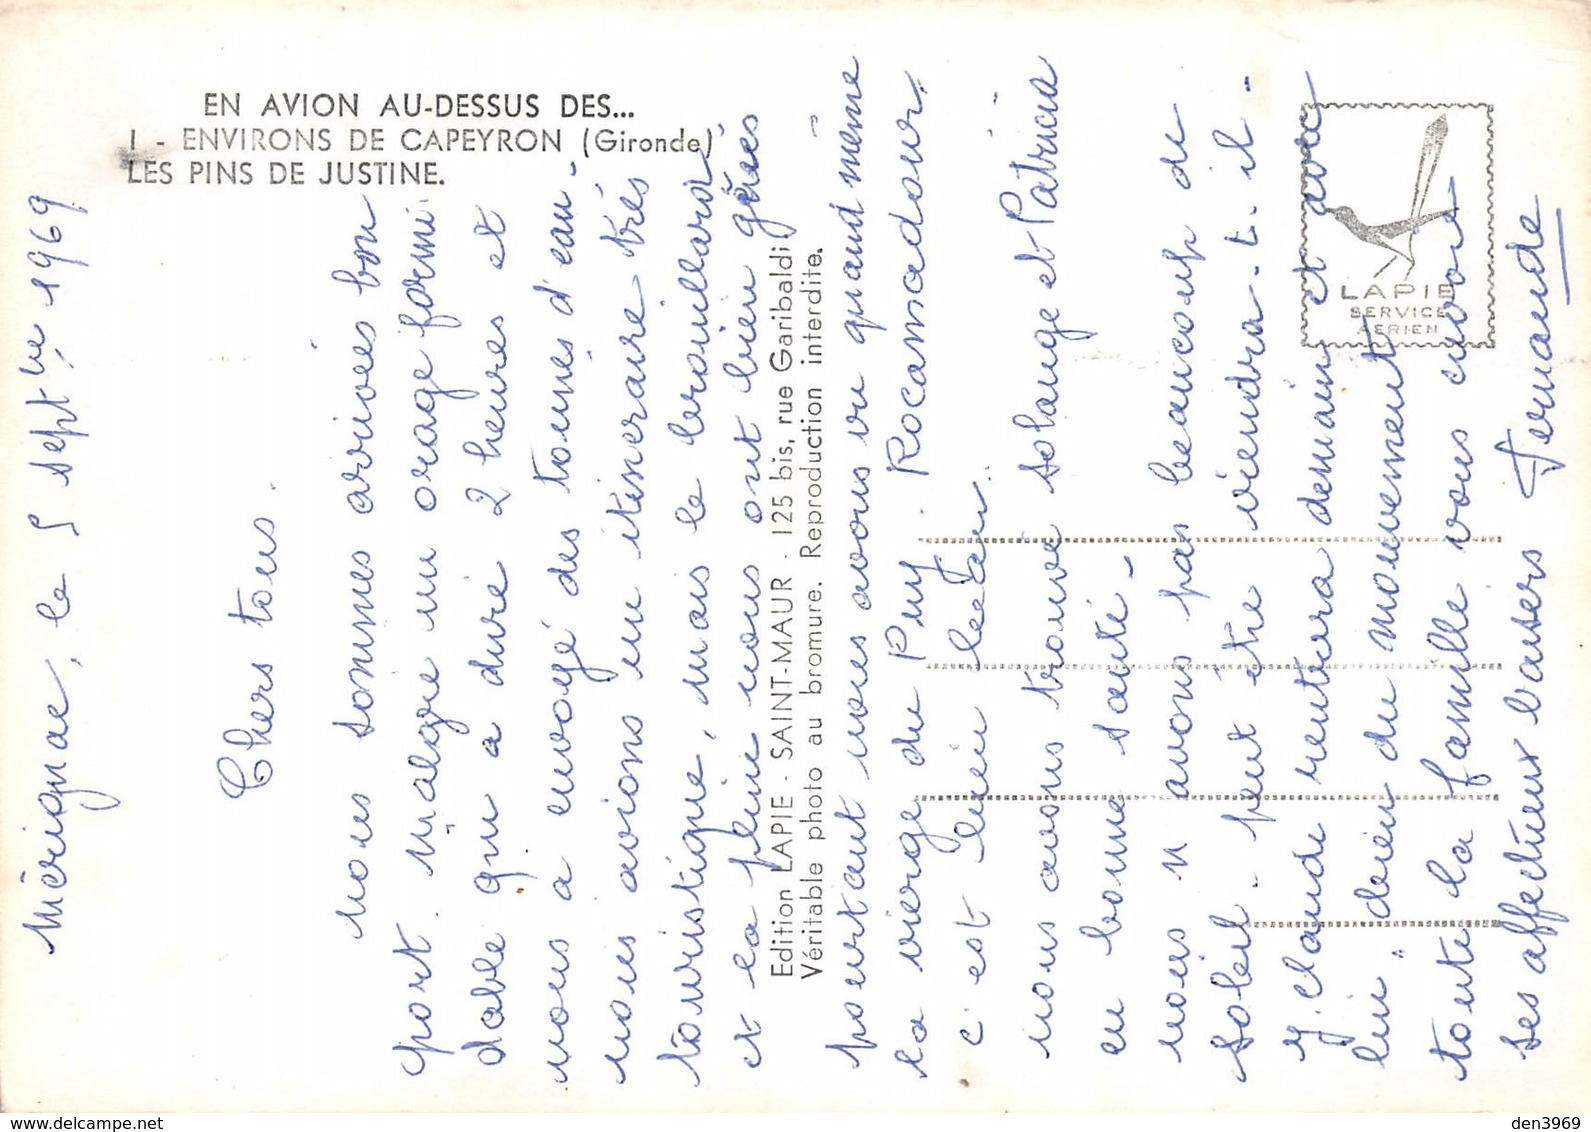 EN AVION AU-DESSUS DES...
1 - ENVIRONS DE CAPEYRON (Gironde)
LES PINS DE JUSTINE.
Mérignac, le 5 septbre 1969
Chers tous.
nous sommes arrivées bon
port. malgré un orage formi-
dable qui a duré 2 heures et
nous a envoyé des tonnes d'eau-
nous avions un itineraire très
touristique, mais le brouillard
et la pluie nous ont bien génés
pourtant nous avons vu quand même
la vierge du Puy. Rocamadour.
c'est bien beau.
nous avons trouvé Solange et Patricia
en bonne santé -
nous n'avons pas beaucoup de
soleil - peut être viendra-t-il -
J. Claude rentrera demain et avec
lui du mouvement
toute la famille vous envoie
ses affectueux baisers Fernande
Edition LAPIE - SAINT-MAUR - 125 bis, rue Garibaldi
Véritable photo au bromure. Reproduction interdite.
LAPIE
SERVICE
AERIEN
delcampe.net
den3969